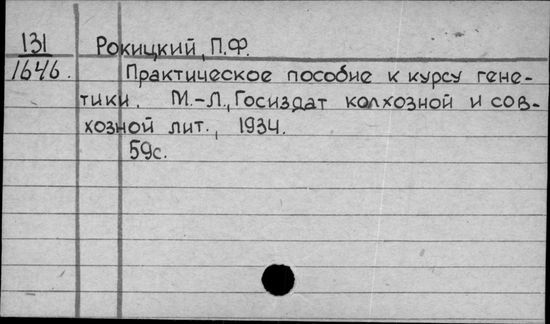 131 Рокицкий, П.Ф.
1646. Практическое пособие к курсу гене-
тики. М.-Л., Госиздат колхозной и сов-
хозной лит., 1934.
59с.